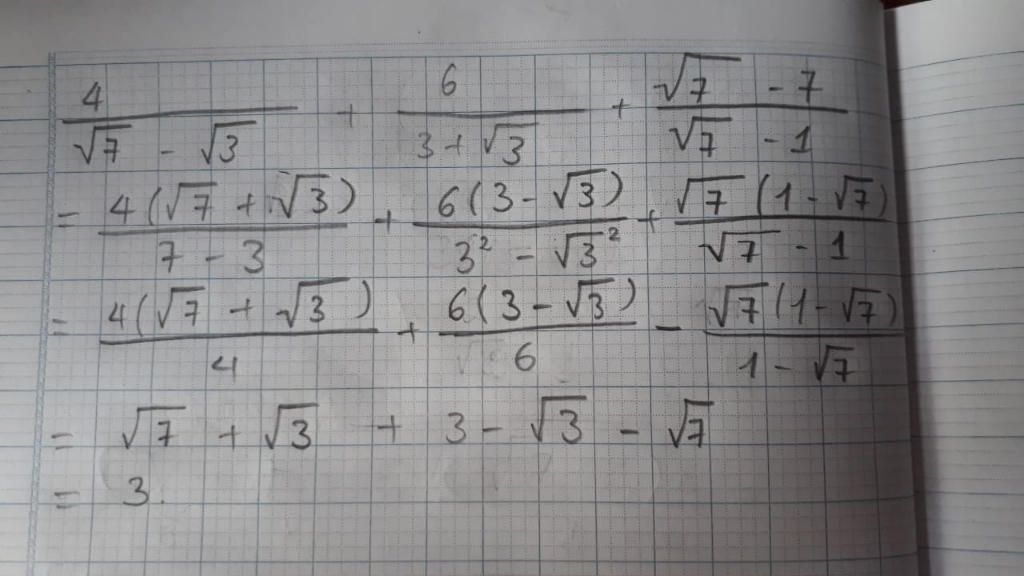 4/(√7 - √3) + 6/(3 + √3) + (√7 - 7)/(√7 - 1)
= 4(√7 + √3)/(7 - 3) + 6(3 - √3)/(3² - √3²) + √7(1 - √7)/(√7 - 1)
= 4(√7 + √3)/4 + 6(3 - √3)/6 - √7(1 - √7)/(1 - √7)
= √7 + √3 + 3 - √3 - √7
= 3.